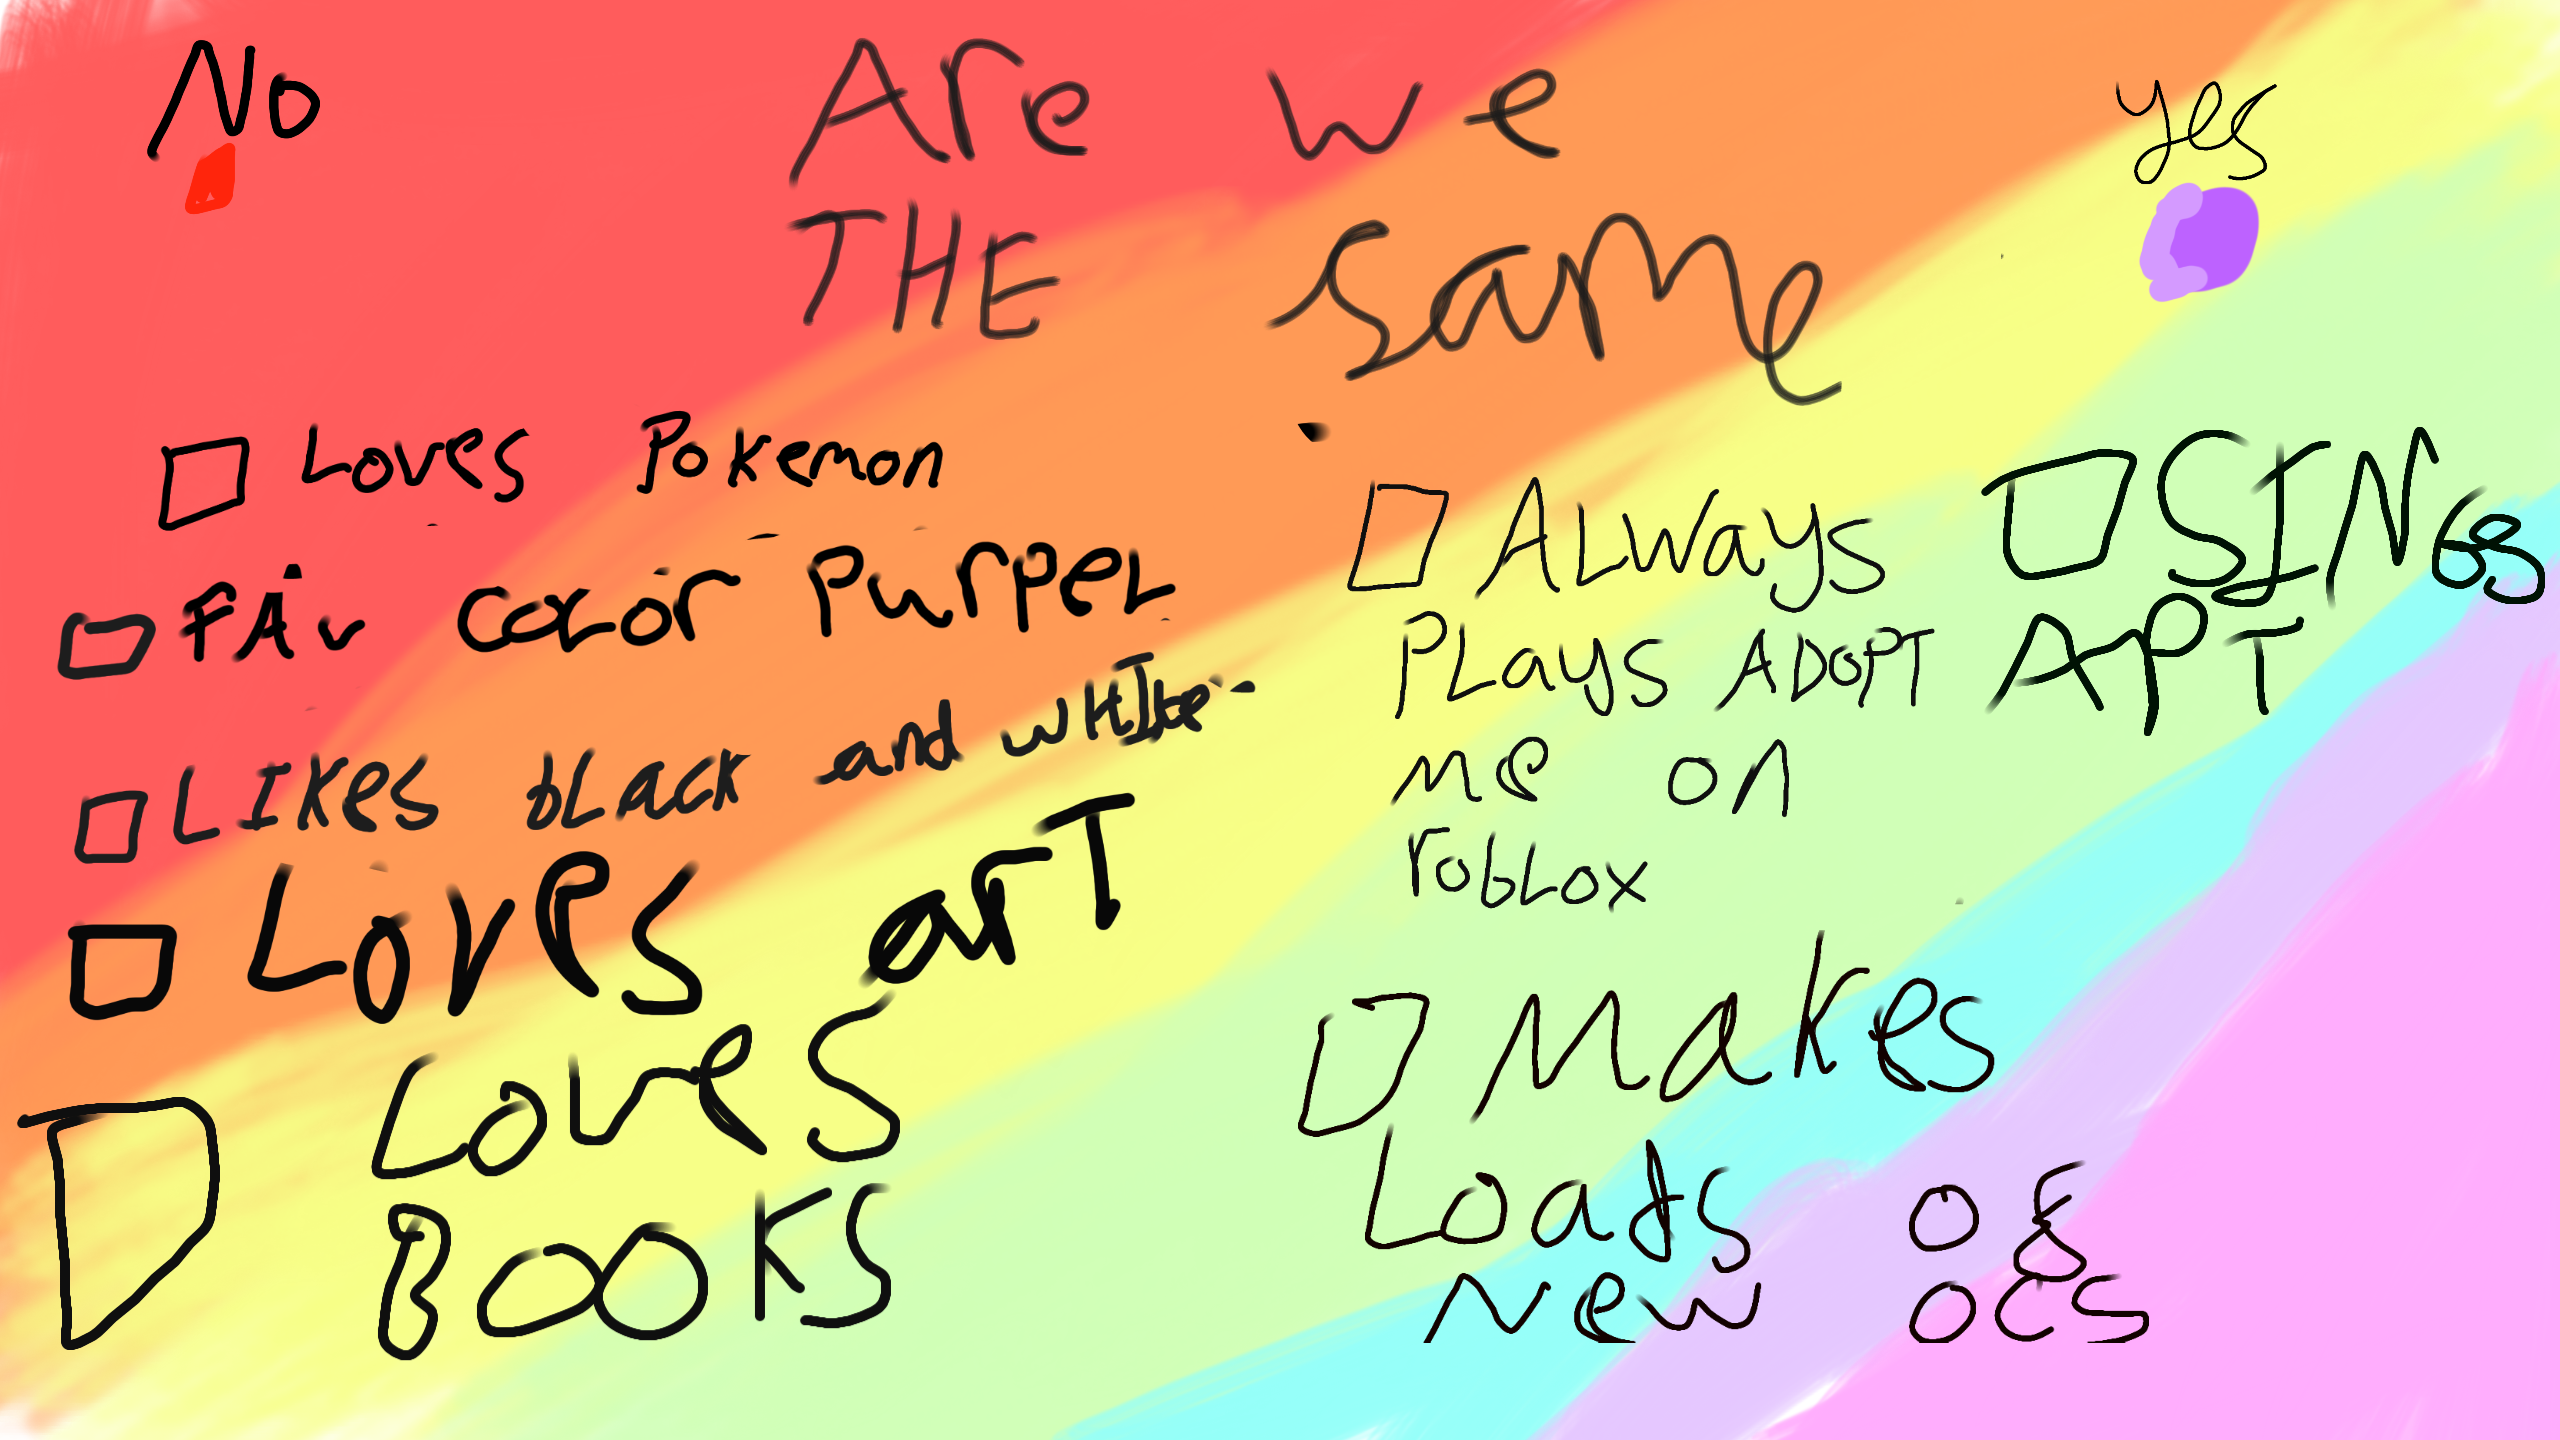 No
Are we
yes
THE same
Loves Pokemon
FAv COLOR PurPeL
LIKes bLack and wHIte
Loves arT
Loves
BOOKS
ALways
PLays ADOPT
me on
robLox
SINGs
APT
Makes
Loads of
New ocs